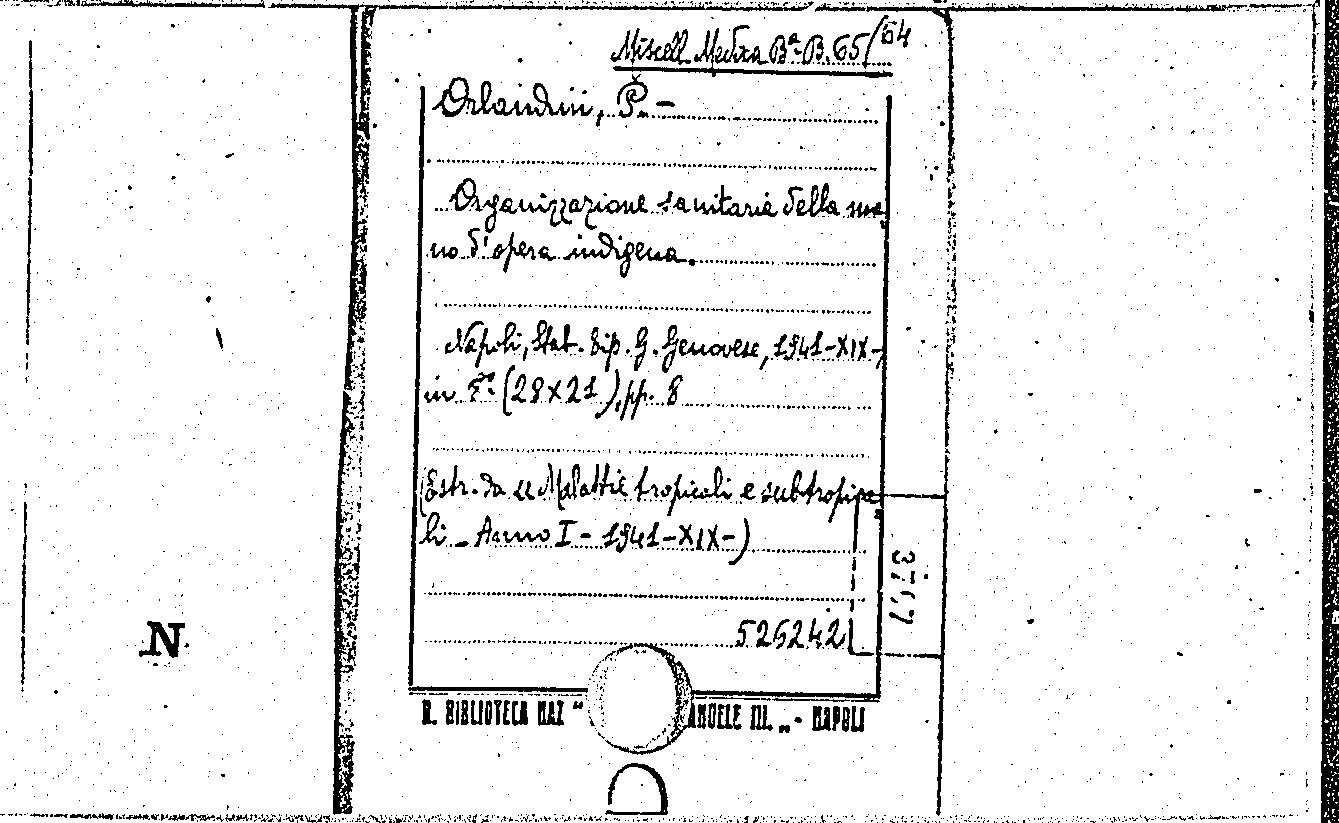 Miscell. Medica Bª B. 65/64
Orlandini, P. -
Organizzazione sanitaria della ma
no d'opera indigena.
Napoli, Stab. Tip. G. Genovese, 1941-XIX-,
in 8º (28x21), pp. 8
(Estr. da "Malattie tropicali e subtropica
li - Anno I - 1941-XIX-)
526242
N
R. BIBLIOTECA NAZ " ANUELE III. „ - NAPOLI